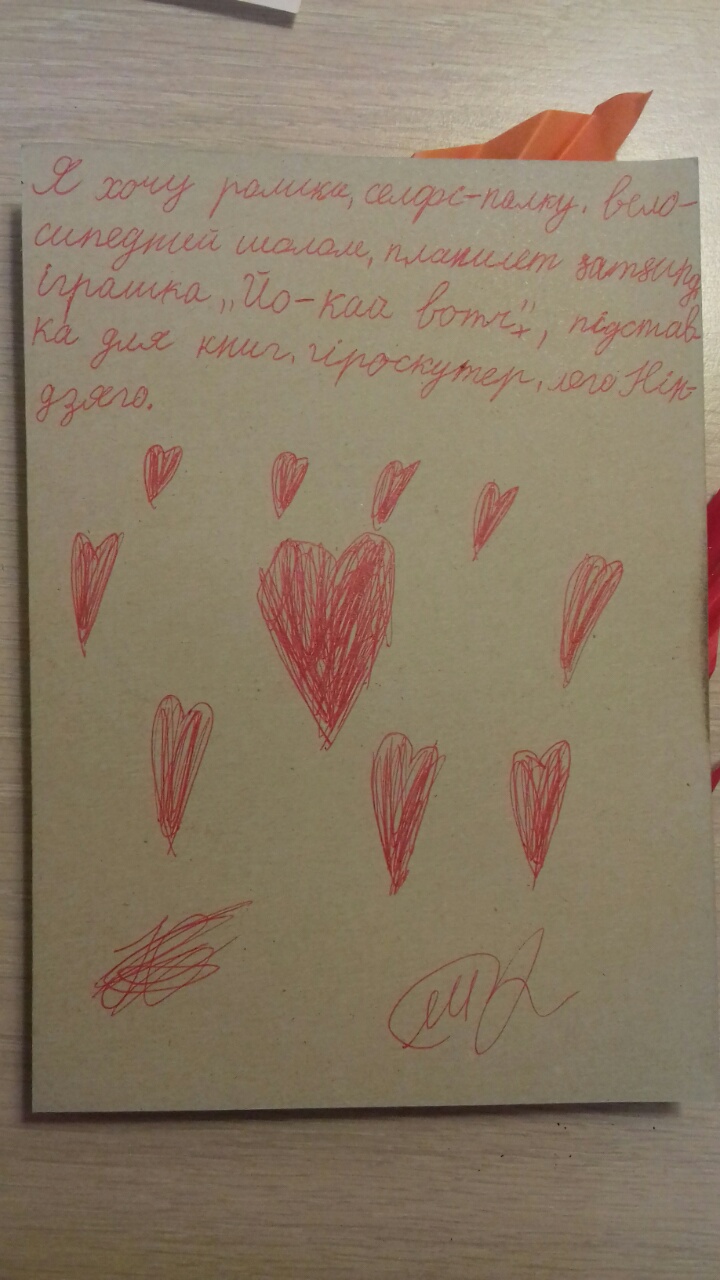 Я хочу ролики, селфі-палку, вело-
сипедний шолом, планшет samsung,
іграшка „Йо-кай вотч", підстав
ка для книг, гіроскутер, лего Нін-
дзяго.